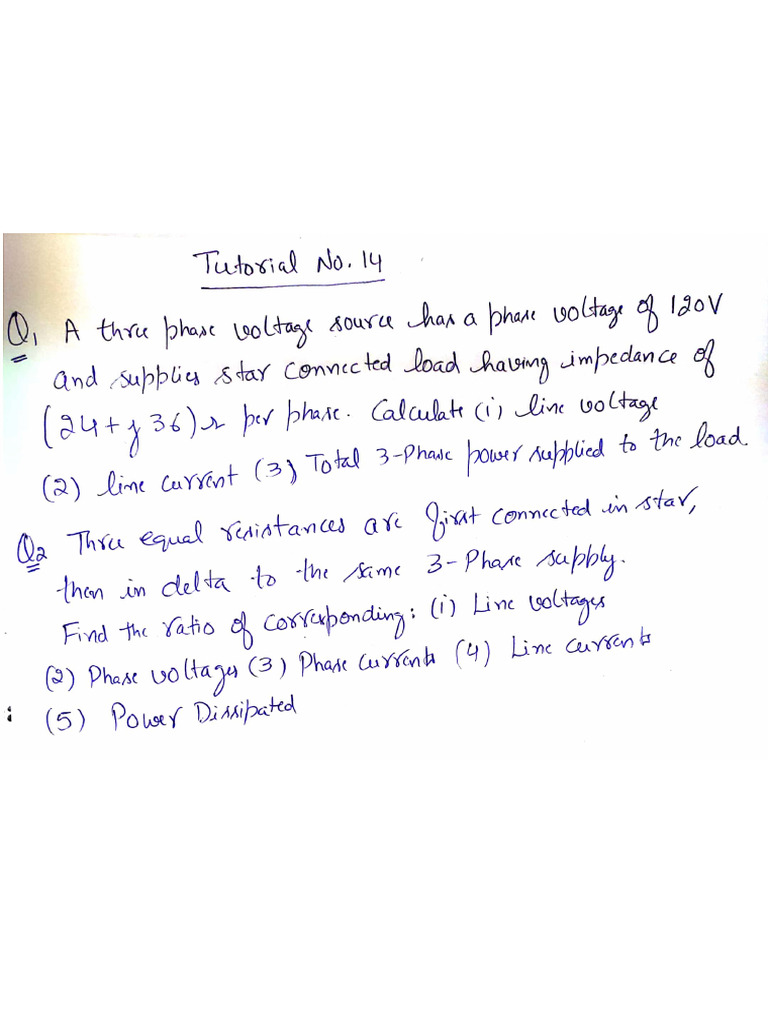 Tutorial No. 14
Q1 A three phase voltage source has a phase voltage of 120V
and supplies star connected load having impedance of
(24+j36)Ω per phase. Calculate (i) line voltage
(2) line current (3) Total 3-Phase power supplied to the load.
Q2 Three equal resistances are first connected in star,
then in delta to the same 3-Phase supply.
Find the ratio of corresponding: (i) Line voltages
(2) Phase voltages (3) Phase currents (4) Line currents
(5) Power Dissipated